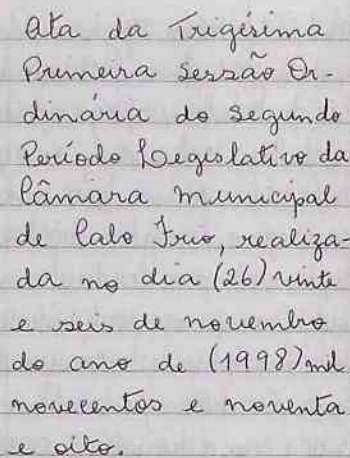 Ata da Trigésima
Primeira Sessão Or-
dinária do Segundo
Período Legislativo da
Câmara Municipal
de Cabo Frio, realiza-
da no dia (26) vinte
e seis de novembro
do ano de (1998) mil
novecentos e noventa
e oito.